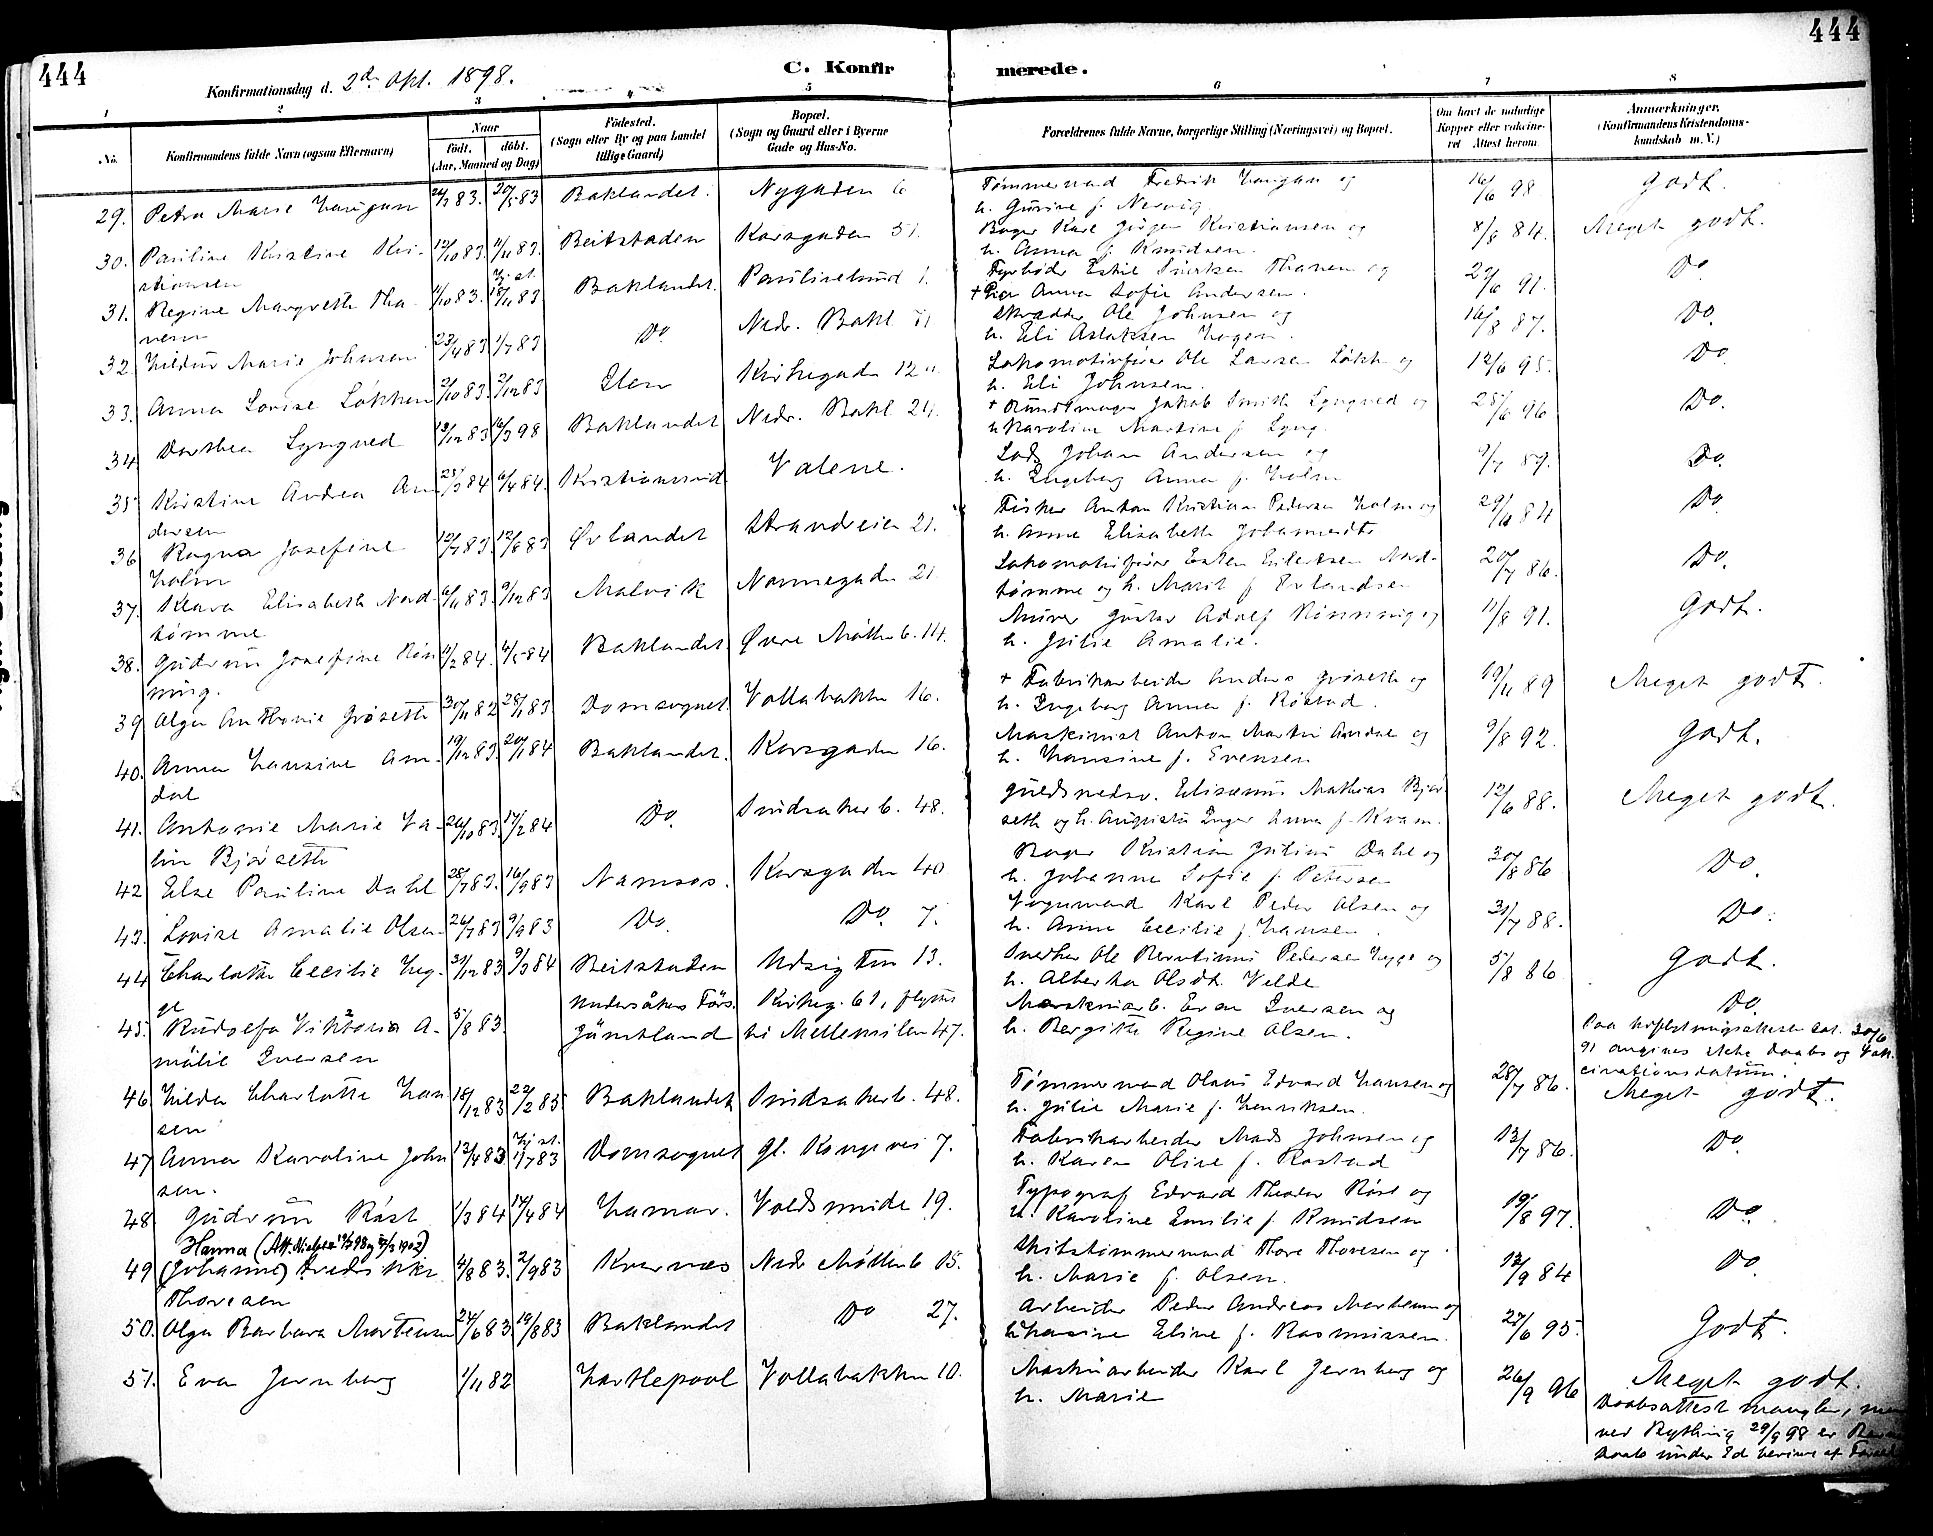 444
444
Konfirmationsdag d. 2den Okt. 1898.
C. Konfirmerede.
1 2 3 4 5 6 7 8
No.
Konfirmandens fulde Navn (ogsaa Efternavn)
Naar
født. døbt.
(Aar, Maaned og Dag)
Fødested.
(Sogn eller By og paa Landet
tillige Gaard)
Bopæl.
(Sogn og Gaard eller i Byerne
Gade og Hus-No.
Forældrenes fulde Navne, borgerlige Stilling (Næringsvei) og Bopæl.
Om havt de naturlige
Kopper eller vakcine-
ret Attest herom
Anmærkninger.
(Konfirmandens Kristendoms-
kundskab m. V.)
29. Petra Marie 83. 20/5 83 Baklandet. Nygaden 6 Tømmermand Fredrik og 16/6 98 Godt.
h. Gurine f.
30. Pauline Kristine Kri- 12/10 83. 11/11 83. Beitstaden Korsgaden 51. Bager Karl Jørgen Kristiansen og 8/8 84. Meget godt.
stiansen h. Anna f. Knudsen.
31. Regine Margrethe Tha- 11/10 83. Hj.st. 18/11 83 Baklandet. Paulinelund 1. Fyrbøder Eskil Thanem og 27/6 91. Do
nem + Anna Sofie Andersen.
32. Hildur Marie Johnsen 23/4 83 1/7 83 Do Nedr. Bakl. 71 Skrædder Ole Johnsen og 16/8 87. Do.
h. Eli Aslaksen
33. Anna Lovise Løkken 2/10 83. 2/12 83 Ilen Kirkegaden 12 Lokomotivfører Ole Larsen Løkken og 12/6 95. Do
h. Eli Johnsen.
34. Dorthea Lyngved 13/12 83 16/3 98 Baklandet Nedr. Bakl. 24. + Jakob Lyngved og 25/6 96 Do.
h. Karoline Martine f. Lyng.
35 Kristine Andrea An- 25/3 84 6/4 84. Kristianssund Valene. Lods Johan Andersen og 9/7 89. Do.
dersen h. Ingeborg Anna f. Holm
36 Ragna Josefine 12/7 83. 12/8 83 Ørlandet Strandveien 21. Fisker Anton Kristian Pedersen Holm og 29/6 84 Do
Holm h. Anne Elisabeth
37. Klara Elisabeth Nord- 6/11 83. 9/12 83 Malvik Nonnegaden 21 Lokomotivfører Esten Eilertsen Nord- 20/7 86. Do.
tømme tømme og h. Marit f. Erlandsen
38. Gudrun Josefine Røn- 11/2 84. 4/5 84 Baklandet Øvre Møllenb. 14. Murer Gustav Adolf Rønning og 11/8 91. Godt.
ning. h. Julie Amalie.
39 Olga Anthonie Grøseth 30/11 82 28/1 83 Domsognet Vollabakken 16. + Fabrikarbeider Anders Grøseth og 19/11 89 Meget godt.
h. Ingeborg Anna f. Røstad.
40. Anna Hansine Am- 19/12 83. 20/1 84 Baklandet. Korsgaden 16. Maskinist Anton Martin Amdal og 9/8 92. Godt.
dal h. Hansine f. Evensen
41. Antonie Marie Va- 26/10 83. 17/2 84 Do. Sindsakerb. 48. Guldsmedsv. Elisæus Mathias Bjør- 12/6 88. Meget godt.
lin Bjørseth seth og h. Augusta Inger Anna f. Kvam.
42 Else Pauline Dahl 28/7 83. 16/9 83 Namsos. Korsgaden 40 Bager Kristian Julius Dahl og 30/8 86 Do.
h. Johanne Sofie f. Petersen
43. Lovise Amalie Olsen 26/7 83 9/9 83 Do. Do. 7. Vognmand Karl Peder Olsen og 31/7 88. Do.
h. Anne Cecilie f. Hansen.
44 Charlotte Cecilie Hyg- 31/12 83 9/3 84 Beitstaden Udsigten 13. Snedker Ole Pedersen Hygge og 5/8 86 Godt.
ge h. Alberta Olsdt. Velde
45. Rudolfa Viktoria A- 5/8 83. Undersåkers Förs. Kirkeg. 61, flyttet Maskinarb. Even Iversen og Do.
malie Iversen Jämtland til Mellemilen 47. h. Bergithe Regine Olsen.
Paa Indflytningsattesten dat. 30/6
91 angives ikke Daabs og Vak-
cinationsdatum.
46 Hilda Charlotte Han- 18/12 83 22/2 85 Baklandet Sindsakerb. 48. Tømmermand Olaus Edvard Hansen og 28/7 86. Meget godt.
sen h. Julie Marie f. Henriksen.
47 Anna Karoline John- 12/4 83 Hj.st. 1/7 83 Domsognet gl. Kongevei 7. Fabrikarbeider Mads Johnsen og 13/7 86. Do
sen. h. Karen Oline f. Rostad
48 Gudrun Røst 1/3 84 14/4 84 Hamar. Voldsminde 19. Typograf Edvard Theodor Røst og 19/8 97. Do
h. Karoline Emilie f. Knudsen
Hanna
49 (Johanne) Fredrikke 4/8 83. 2/9 83 Kvernæs Nedr. Møllenb 15. Skibstømmermand Thore Thoresen og 13/9 84 Do
Thoresen h. Marie f. Olsen.
50. Olga Barbara Martensen 24/6 83 19/8 83 Baklandet Do 27. Arbeider Peder Andreas og 25/6 95. Godt.
Eline f. Rasmussen.
51. Eva Jernberg 1/11 82 Hartlepool Vollabakken 10. Maskinarbeider Karl Jernberg og 26/9 96 Meget godt.
h. Marie
Daabsattest mangler, men
ved 29/9 98 er
Daab under Ed af